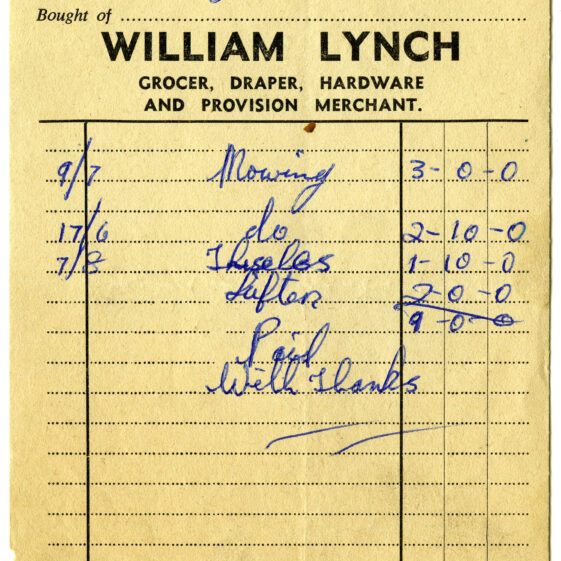 Bought of
WILLIAM LYNCH
GROCER, DRAPER, HARDWARE
AND PROVISION MERCHANT.
9/7 Mowing 3-0-0
17/6 do 2-10-0
7/8 1-10-0
2-0-0
9-0-0
Paid
With Thanks